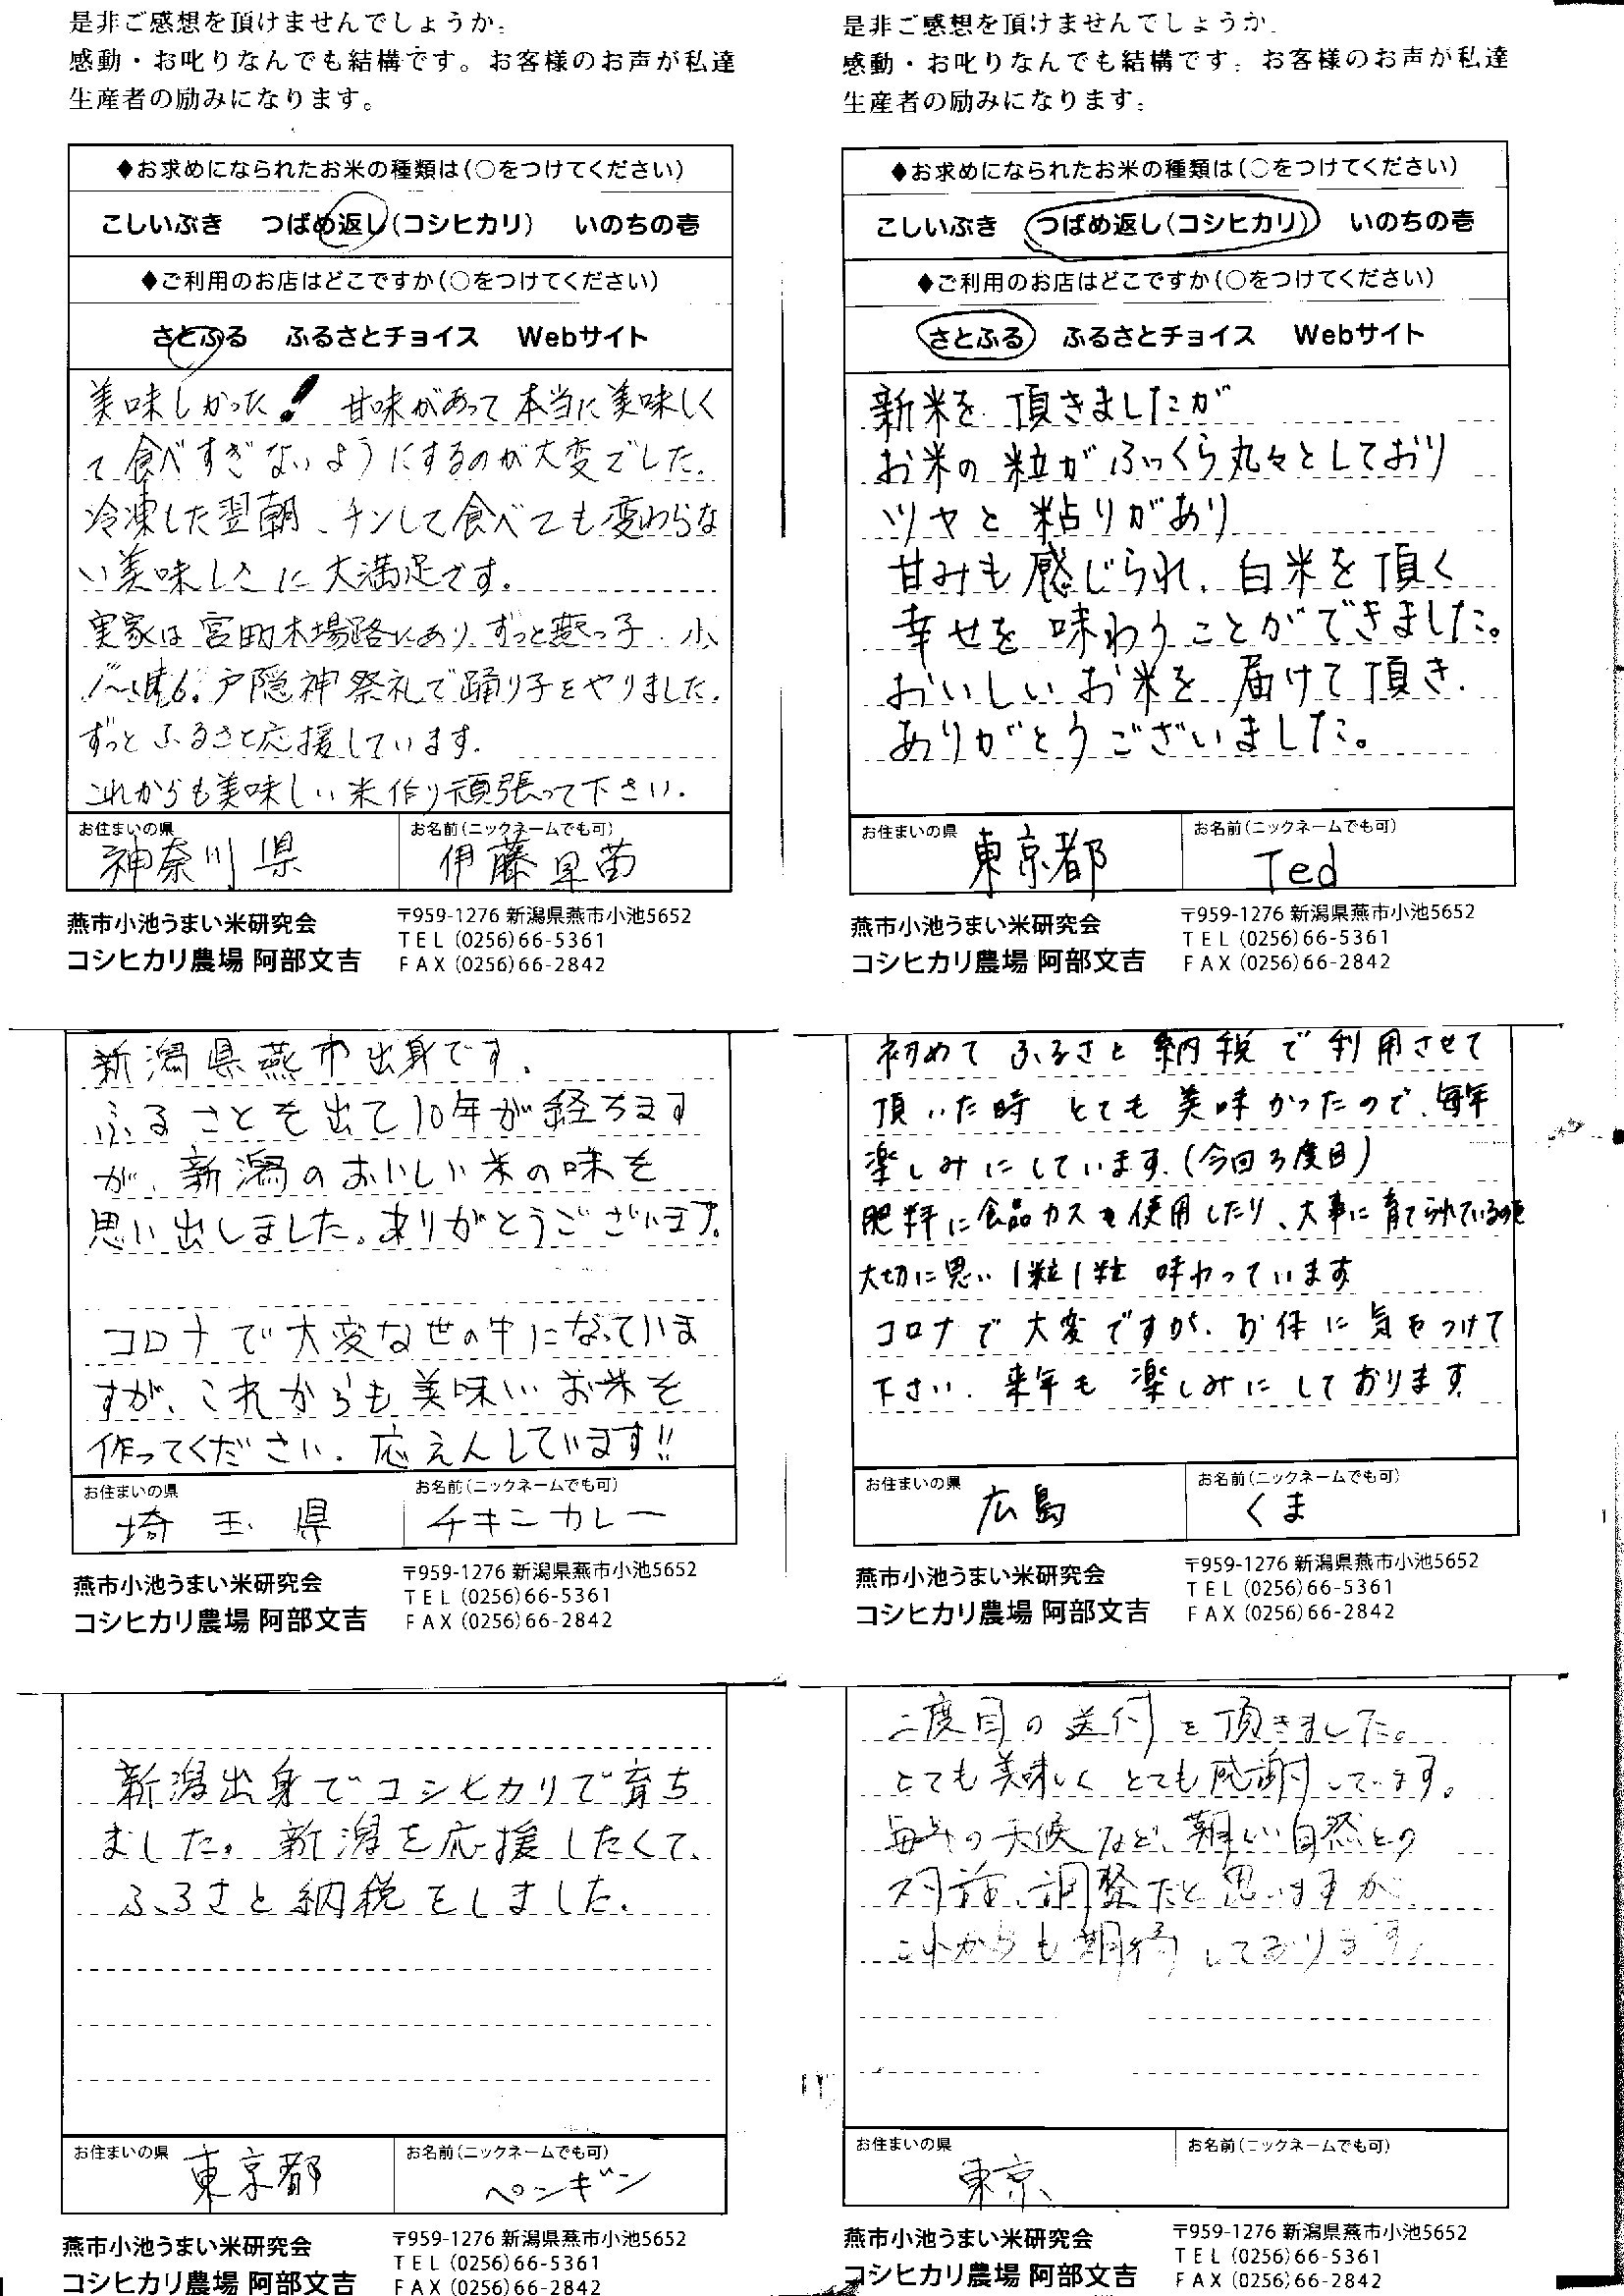 是非ご感想を頂けませんでしょうか。
感動・お叱りなんでも結構です。お客様のお声が私達
生産者の励みになります。
◆お求めになられたお米の種類は(○をつけてください)
こしいぶき つばめ返し(コシヒカリ) いのちの壱
◆ご利用のお店はどこですか(○をつけてください)
さとふる ふるさとチョイス Webサイト
美味しかった! 甘味があって本当に美味しく
て食べすぎないようにするのが大変でした。
冷凍した翌朝、チンして食べても変わらな
い美味しさに大満足です。
実家は宮町木場路にあり、ずっと燕っ子。小
戸隠神祭礼で踊り子をやりました。
ずっとふるさと応援しています。
これからも美味しい米作り頑張って下さい。
お住まいの県
神奈川県
お名前(ニックネームでも可)
伊藤早苗
燕市小池うまい米研究会
コシヒカリ農場 阿部文吉
〒959-1276 新潟県燕市小池5652
TEL (0256)66-5361
FAX (0256)66-2842
是非ご感想を頂けませんでしょうか。
感動・お叱りなんでも結構です。お客様のお声が私達
生産者の励みになります。
◆お求めになられたお米の種類は(○をつけてください)
こしいぶき つばめ返し(コシヒカリ) いのちの壱
◆ご利用のお店はどこですか(○をつけてください)
さとふる ふるさとチョイス Webサイト
新米を頂きましたが
お米の粒がふっくら丸々としており
ツヤと粘りがあり
甘みも感じられ、白米を頂く
幸せを味わうことができました。
おいしいお米を届けて頂き、
ありがとうございました。
お住まいの県
東京都
お名前(ニックネームでも可)
Ted
燕市小池うまい米研究会
コシヒカリ農場 阿部文吉
〒959-1276 新潟県燕市小池5652
TEL (0256)66-5361
FAX (0256)66-2842
新潟県燕市出身です。
ふるさとを出て10年が経ちます
が、新潟のおいしい米の味を
思い出しました。ありがとうございます。
コロナで大変な世の中になっていま
すが、これからも美味いお米を
作ってください。応えんしています!!
お住まいの県
埼玉県
お名前(ニックネームでも可)
チキンカレー
燕市小池うまい米研究会
コシヒカリ農場 阿部文吉
〒959-1276 新潟県燕市小池5652
TEL (0256)66-5361
FAX (0256)66-2842
初めてふるさと納税で利用させて
頂いた時 とても美味かったので、毎年
楽しみにしています。(今回3度目)
肥料に食品カスを使用したり、大事に育てられているのを
大切に思い1粒1粒 味わっています
コロナで大変ですが、お体に気をつけて
下さい。来年も楽しみにしております。
お住まいの県
広島
お名前(ニックネームでも可)
くま
燕市小池うまい米研究会
コシヒカリ農場 阿部文吉
〒959-1276 新潟県燕市小池5652
TEL (0256)66-5361
FAX (0256)66-2842
新潟出身でコシヒカリで育ち
ました。新潟を応援したくて、
ふるさと納税をしました。
お住まいの県
東京都
お名前(ニックネームでも可)
ペンギン
燕市小池うまい米研究会
コシヒカリ農場 阿部文吉
〒959-1276 新潟県燕市小池5652
TEL (0256)66-5361
FAX (0256)66-2842
二度目の送付を頂きました。
とても美味しくとても感謝しています。
毎年の天候など、難しい自然との
対話、調整だと思いますが
これからも期待しております。
お住まいの県
東京、
お名前(ニックネームでも可)
燕市小池うまい米研究会
コシヒカリ農場 阿部文吉
〒959-1276 新潟県燕市小池5652
TEL (0256)66-5361
FAX (0256)66-2842